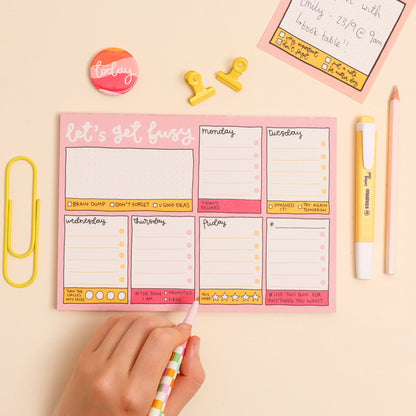 Emily - 23/9 @ 9am
book table!!
today
let's get busy
monday
tuesday
BRAIN DUMP DON'T FORGET V GOOD IDEAS
TODAY'S
REWARD
SMASHED
IT!
TRY AGAIN
TOMORROW
wednesday
thursday
friday
#
TURN THE
CIRCLES
INTO FACES
AFTER TODAY
I AM
PROMOTED
FIRED
THIS
WEEK:
* USE THIS BOX FOR
ANYTHING YOU WANT
STABILO